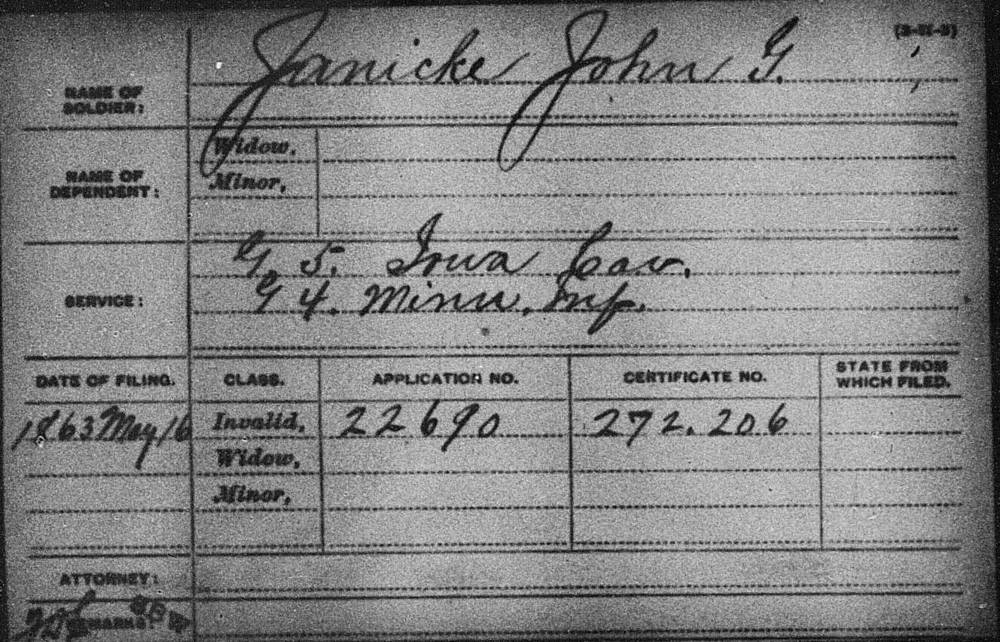 Janicke John G.
NAME OF
SOLDIER:
NAME OF
DEPENDENT:
Widow,
Minor,
SERVICE:
G, 5. Iowa Cav.
G 4. Minn. Inf.
DATE OF FILING.
CLASS.
APPLICATION NO.
CERTIFICATE NO.
STATE FROM
WHICH FILED.
1863 May 16
Invalid,
22690
272.206
Widow,
Minor,
ATTORNEY:
REMARKS: